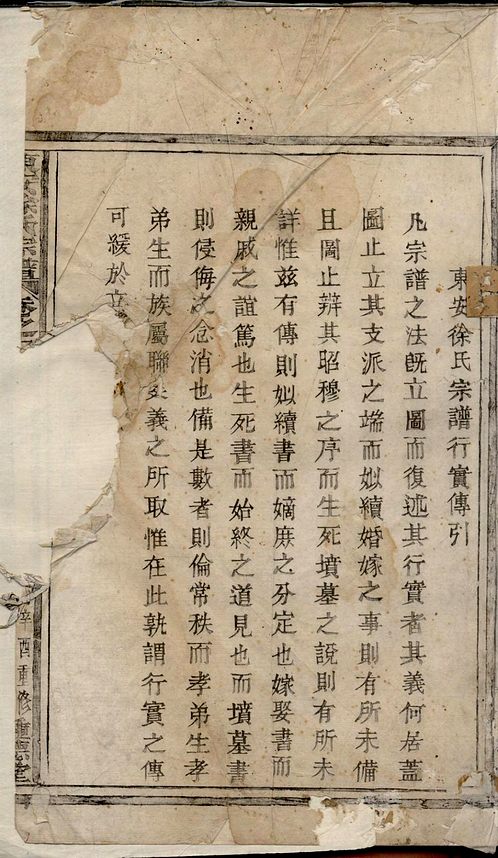 東安徐氏宗譜行實傳引
凡宗譜之法旣立圖而復述其行實者其義何居蓋
圖止立其支派之端而姒續婚嫁之事則有所未備
且圖止辯其昭穆之序而生死墳墓之說則有所未
詳惟玆有傳則姒續書而嫡庶之分定也嫁娶書而
親戚之誼篤也生死書而始終之道見也而墳墓書
則侵侮之念消也備是數者則倫常秩而孝弟生孝
弟生而族屬聯矣義之所取惟在此孰謂行實之傳
可緩於立
徐氏宗譜
辛酉重修